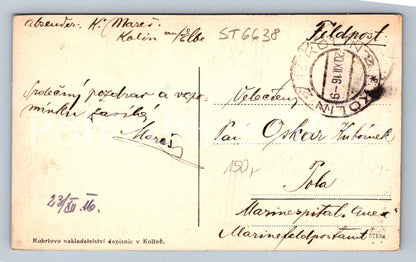 Absender: K. Mareš
Kolin a/Elbe
ST6638
Feldpost.
KOLIN
20 XII 16-9
KOLIN
Srdečný pozdrav a vzpo-
mínku zasílá
Mareš
Velectěný
Pan Oskar Kubánek
150,-
Pola
Marinespital
Marinefeldpostamt
23/XII 16.
Kubrtovo nakladatelství dopisnic v Kolíně.